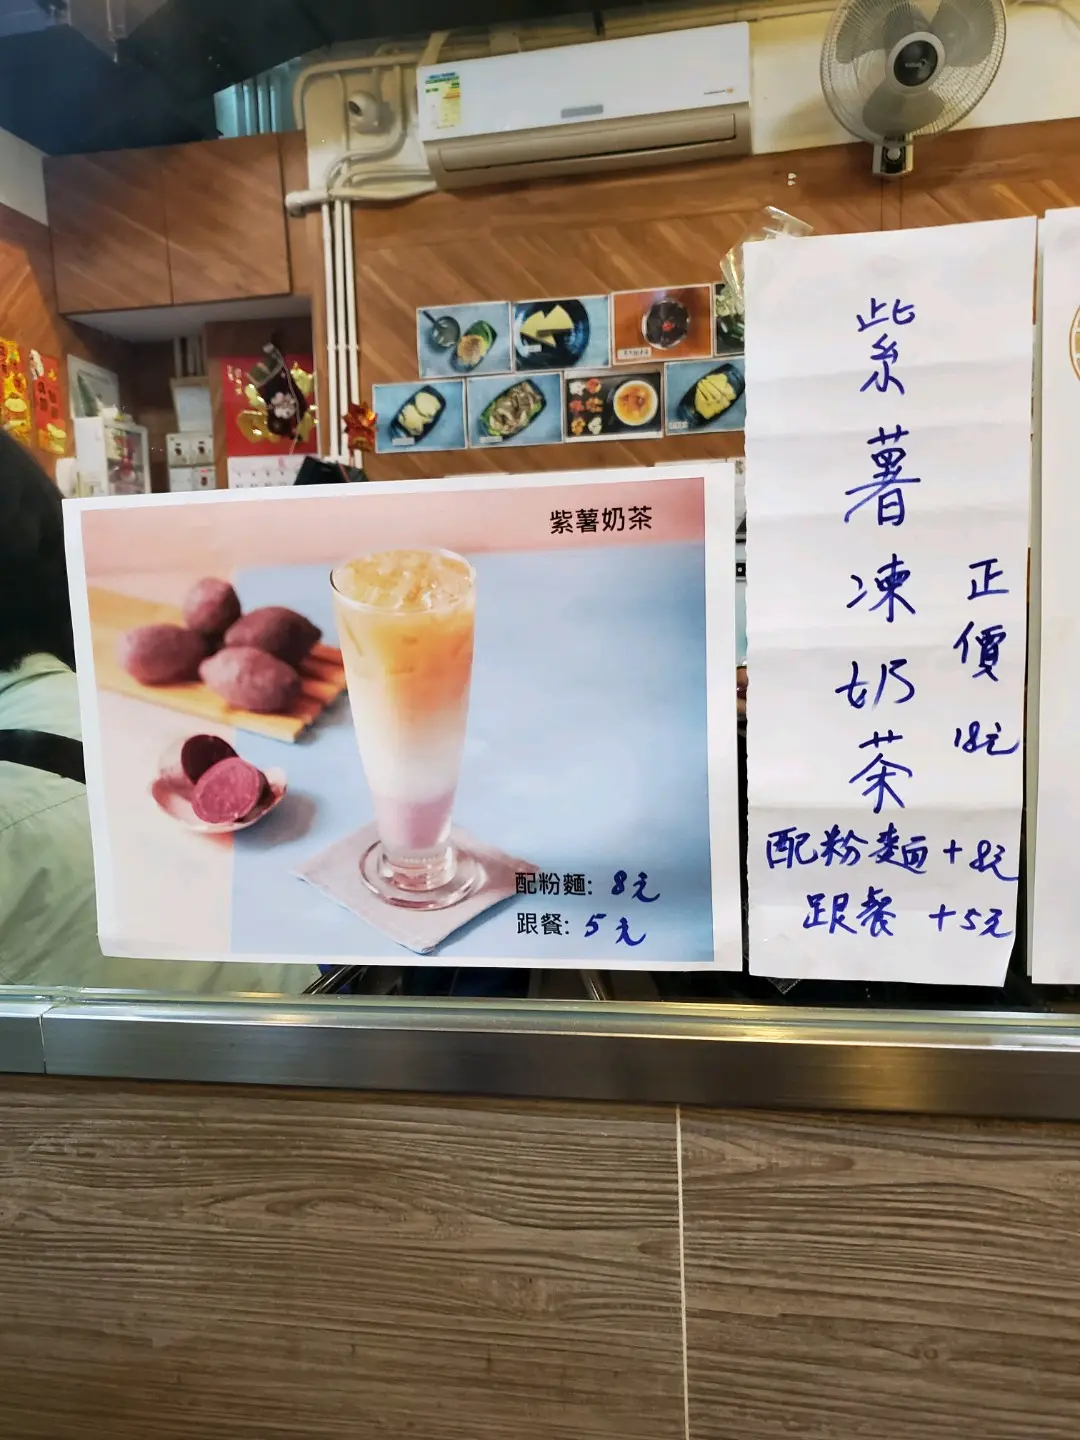 紫薯奶茶
配粉麵: 8元
跟餐: 5元
紫薯凍奶茶
正價18元
配粉麵+8元
跟餐 +5元